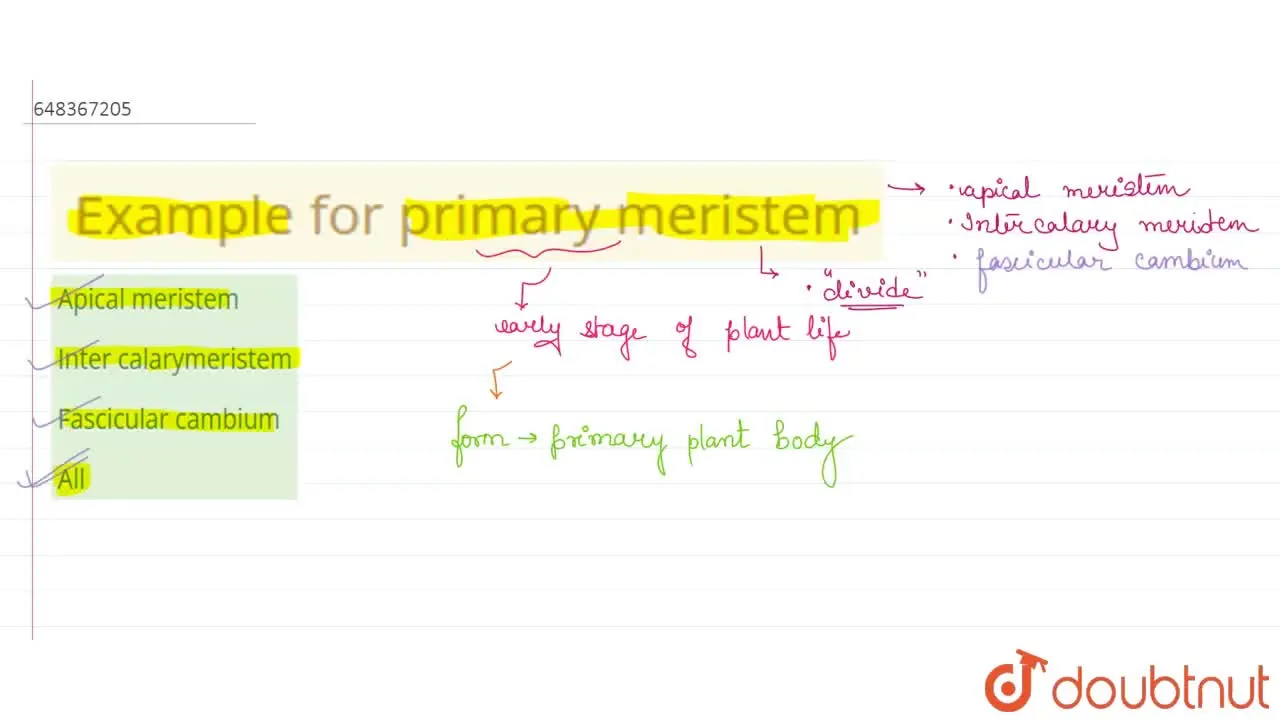 648367205
Example for primary meristem
Apical meristem
Inter calarymeristem
Fascicular cambium
All
→ · apical meristem
· Intercalary meristem
· fascicular cambium
· "divide"
early stage of plant life
form → primary plant body
doubtnut